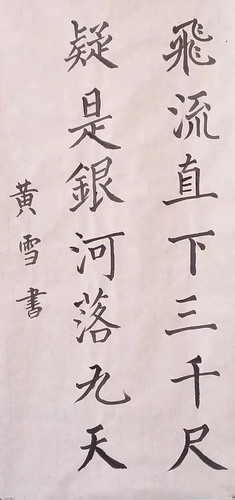 飛流直下三千尺
疑是銀河落九天
黄雪書